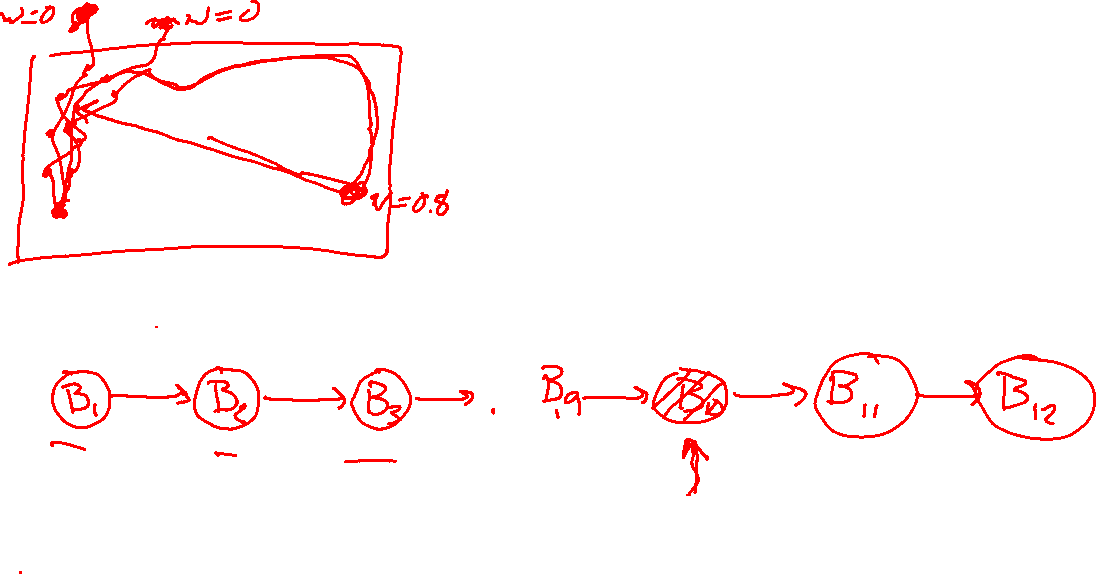 w=0 w=0
w=0.8
B1 B2 B3 . B9 B10 B11 B12